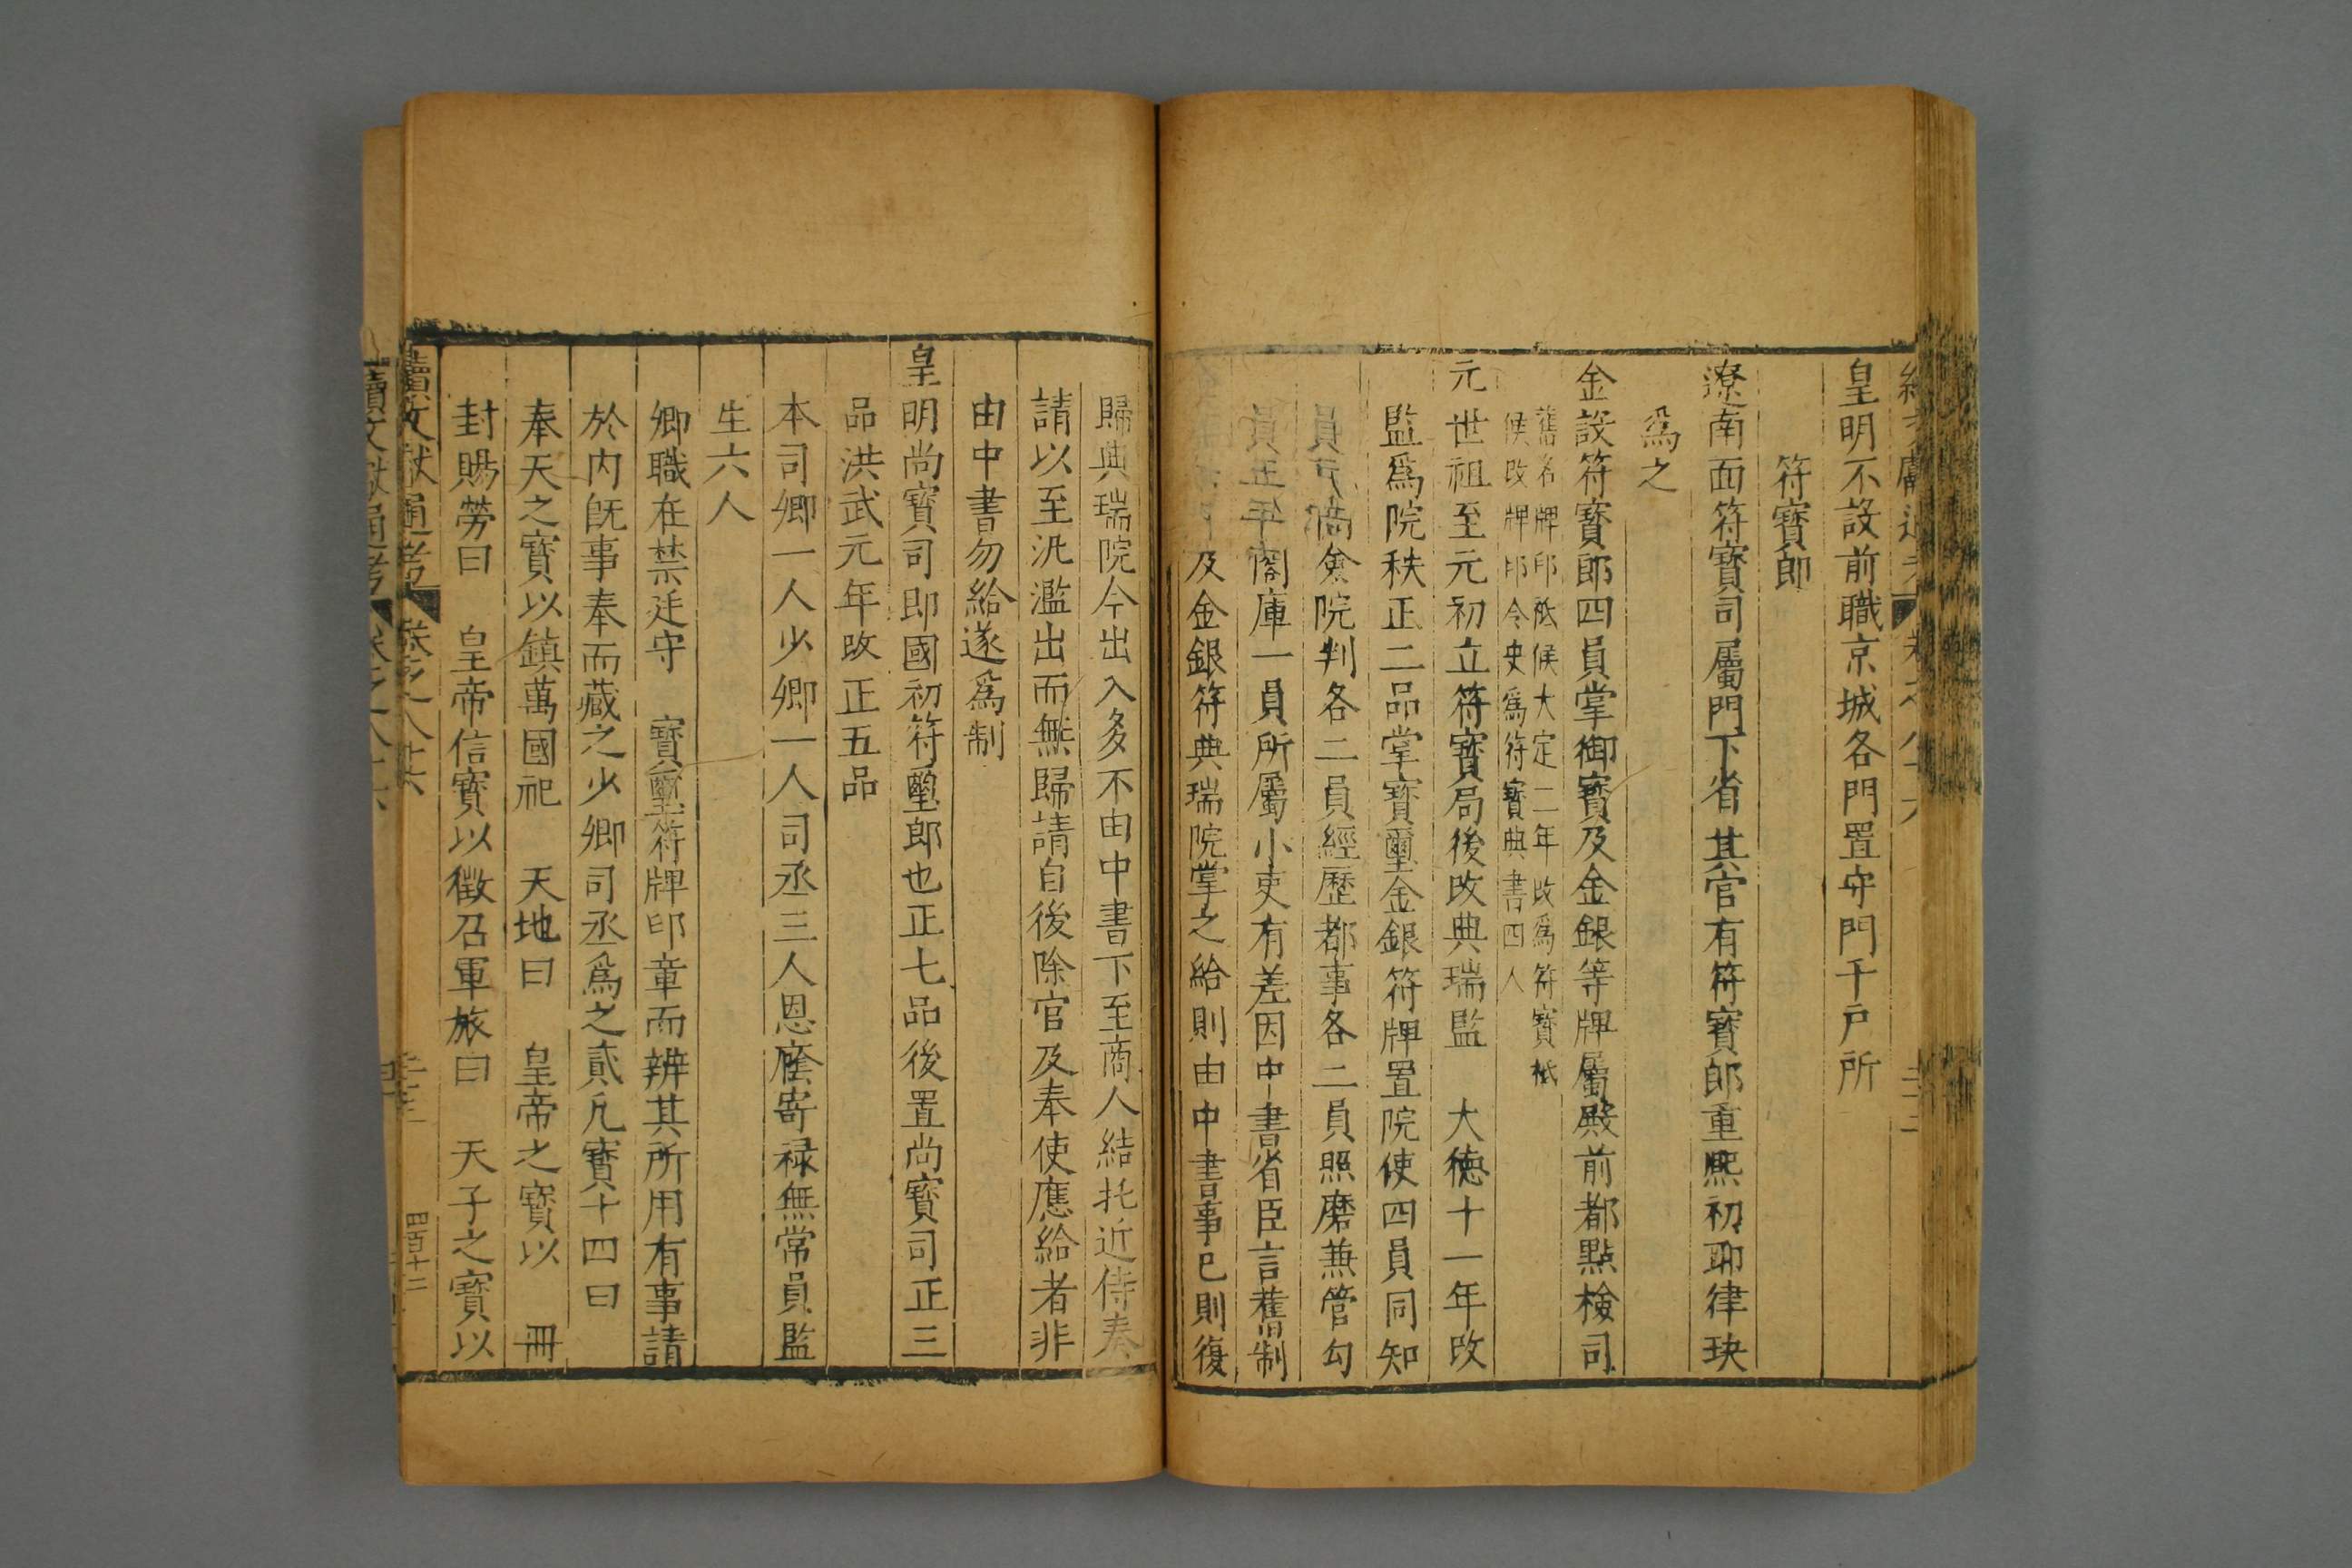 皇明不設前職京城各門置守門千戶所
符寶郎
遼南面符寶司屬門下省其官有符寶郎重熙初耶律玦
爲之
金設符寶郎四員掌御寶及金銀等牌屬殿前都點檢司
舊名牌印祗候大定二年改爲符寶祗
候改牌印令史爲符寶典書四人
元世祖至元初立符寶局後改典瑞監　大德十一年改
監爲院秩正二品掌寶璽金銀符牌置院使四員同知
員僉院判各二員經歷都事各二員照磨兼管勾
員五年閣庫一員所屬小吏有差因中書省臣言舊制
及金銀符典瑞院掌之給則由中書事已則復
歸典瑞院今出入多不由中書下至商人結托近侍奏
請以至汎濫出而無歸請自後除官及奉使應給者非
由中書勿給遂爲制
皇明尚寶司卽國初符璽郎也正七品後置尚寶司正三
品洪武元年改正五品
本司卿一人少卿一人司丞三人恩廕寄祿無常員監
生六人
卿職在禁廷守　寶璽符牌印章而辨其所用有事請
於內既事奉而藏之少卿司丞爲之貳凡寶十四曰
奉天之寶以鎮萬國祀　天地曰　皇帝之寶以　冊
封賜勞曰　皇帝信寶以徵召軍旅曰　天子之寶以
續文獻通考　卷之八十六
四百十二